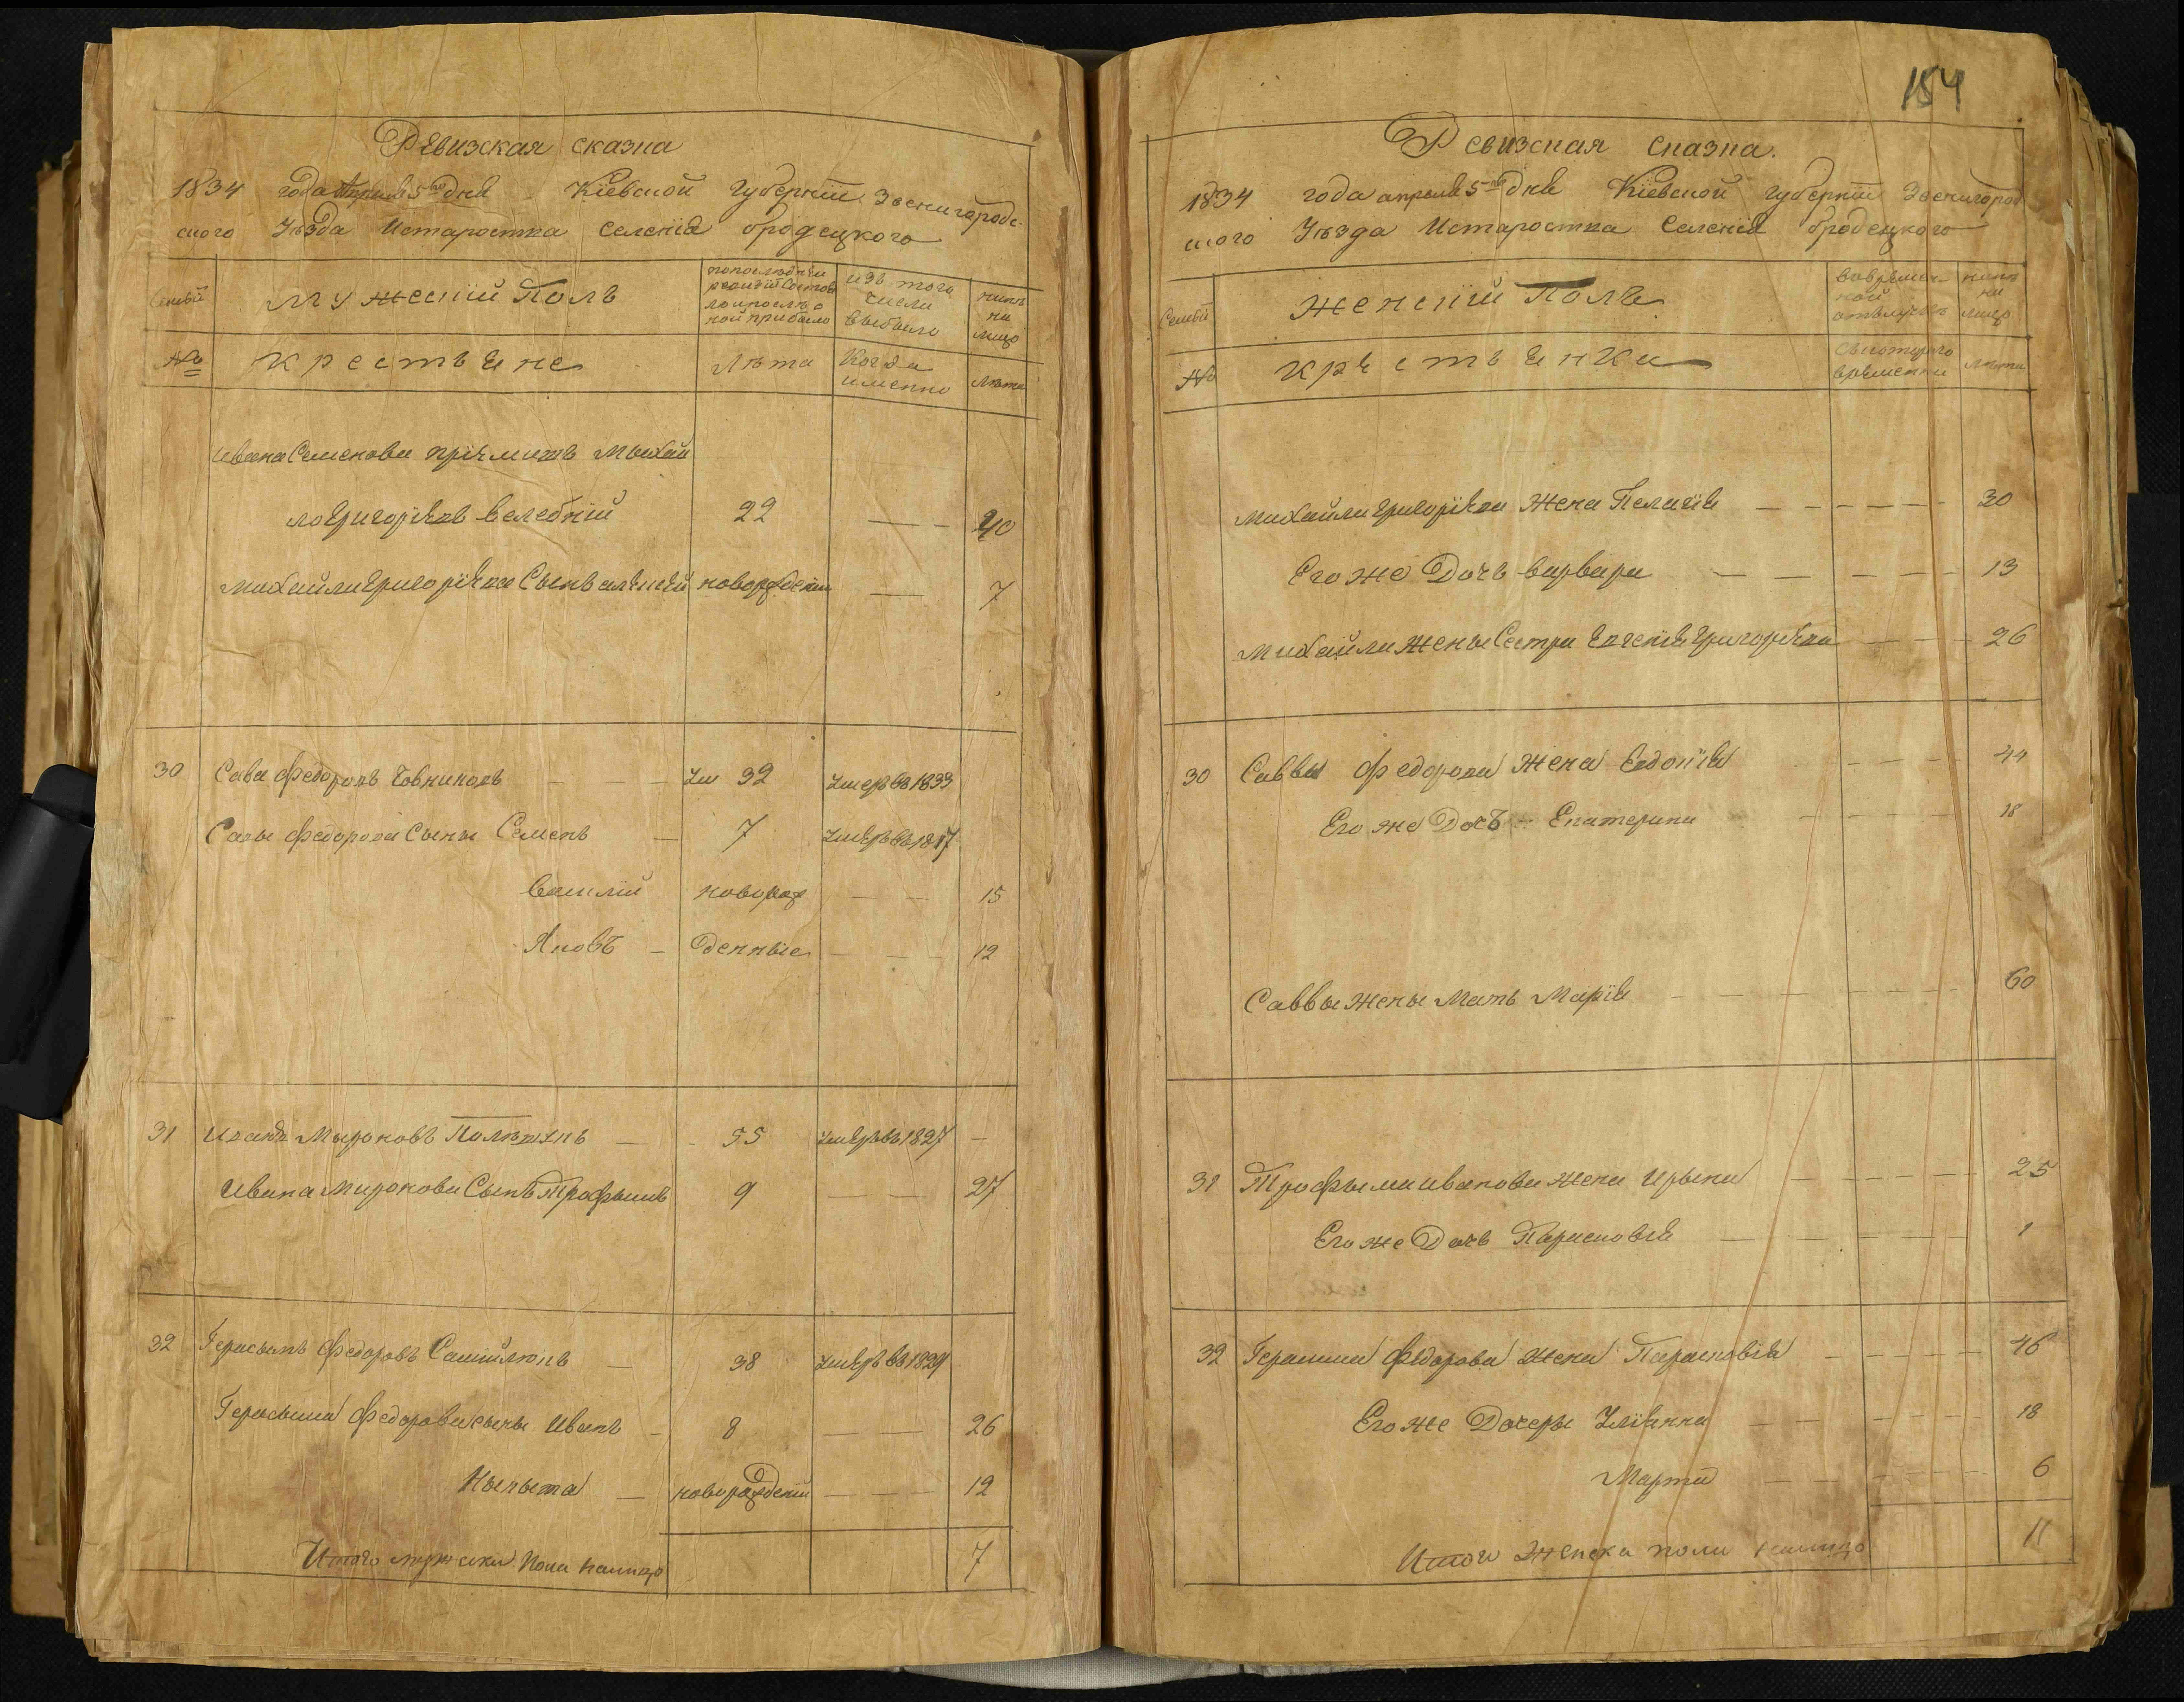 Ревизская сказка
1834 года Апреля 5го дня Кіевской Губерніи Звенигородс-
кого Уѣзда Истаростка Селенія бродецкого
Семьи
Мужескій Полъ
попослѣдней
ревизіи Состоя
ло ипослѣ о
ной прибыло
изъ того
числа
выбыло
нынѣ
на
лицо
№
крестьяне
Лѣта
Когда
именно
Лѣта
Ивана Семенова пріемышъ Михай
ло Григоріевъ Велебній 22 — - 40
Михайла Григоріева Сынъ алексей новорожденій — 7
30 Сава Федоровъ Човниковъ — — — Ум 32 Умеръ въ 1833
Савы Федорова Сыны Семенъ — 7 Умеръ въ 1817
Василій новорож — — 15
Яковъ — денные — — — 12
31 Иванъ Мыроновъ — - 55 Умеръ въ 1827 —
Ивана Миронова Сынъ Трофымъ 9 — — 27
32 Герасымъ Федоровъ Самійлюкъ — 38 Умеръ въ 1829
Герасыма Федорова сыны Иванъ - 8 — — 26
Ныкыта — новорожденій — — — 12
Итого мужеска пола налицо 7
154
Ревизская сказка.
1834 года апреля 5го дня Кіевской Губерніи Звенигород
ского Уѣзда Истаростка Селенія бродецкого
Семьи
Женскій Полъ
вовремен-
ной
отълучкѣ
нынѣ
на
лицо
№
крестьянки
Съкоторого
времени
Лѣта
Михайла Григоріева Жена Пелагія — — — — — - 30
Его же Дочь варвара — — — — — 13
Михайла Жены Сестра Евгенія Григоріева — — — 26
30 Саввы Федорова Жена Евдокія - — — — 44
Его же Дочь - Екатерина - — — — — 18
Саввы Жены Мать Марія — — — — — — 60
31 Трофыма иванова жена Ирына — — — — — - 25
Его же Дочь Парасковія — — — — — 1
32 Герасима Федорова жена Парасковія — — — — — 46
Его же Дочеры Уліянна — — — — — 18
Марта — — — — — 6
Итого Женска пола налицо 11